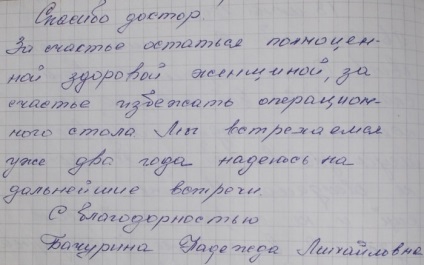 Спасибо доктор.
За счастье остаться полноцен-
ной здоровой женщиной, за
счастье избежать операцион-
ного стола Мы встречаемся
уже два года надеюсь на
дальнейшие встречи.
С благодорностью
Бачурина Надежда Михайловна